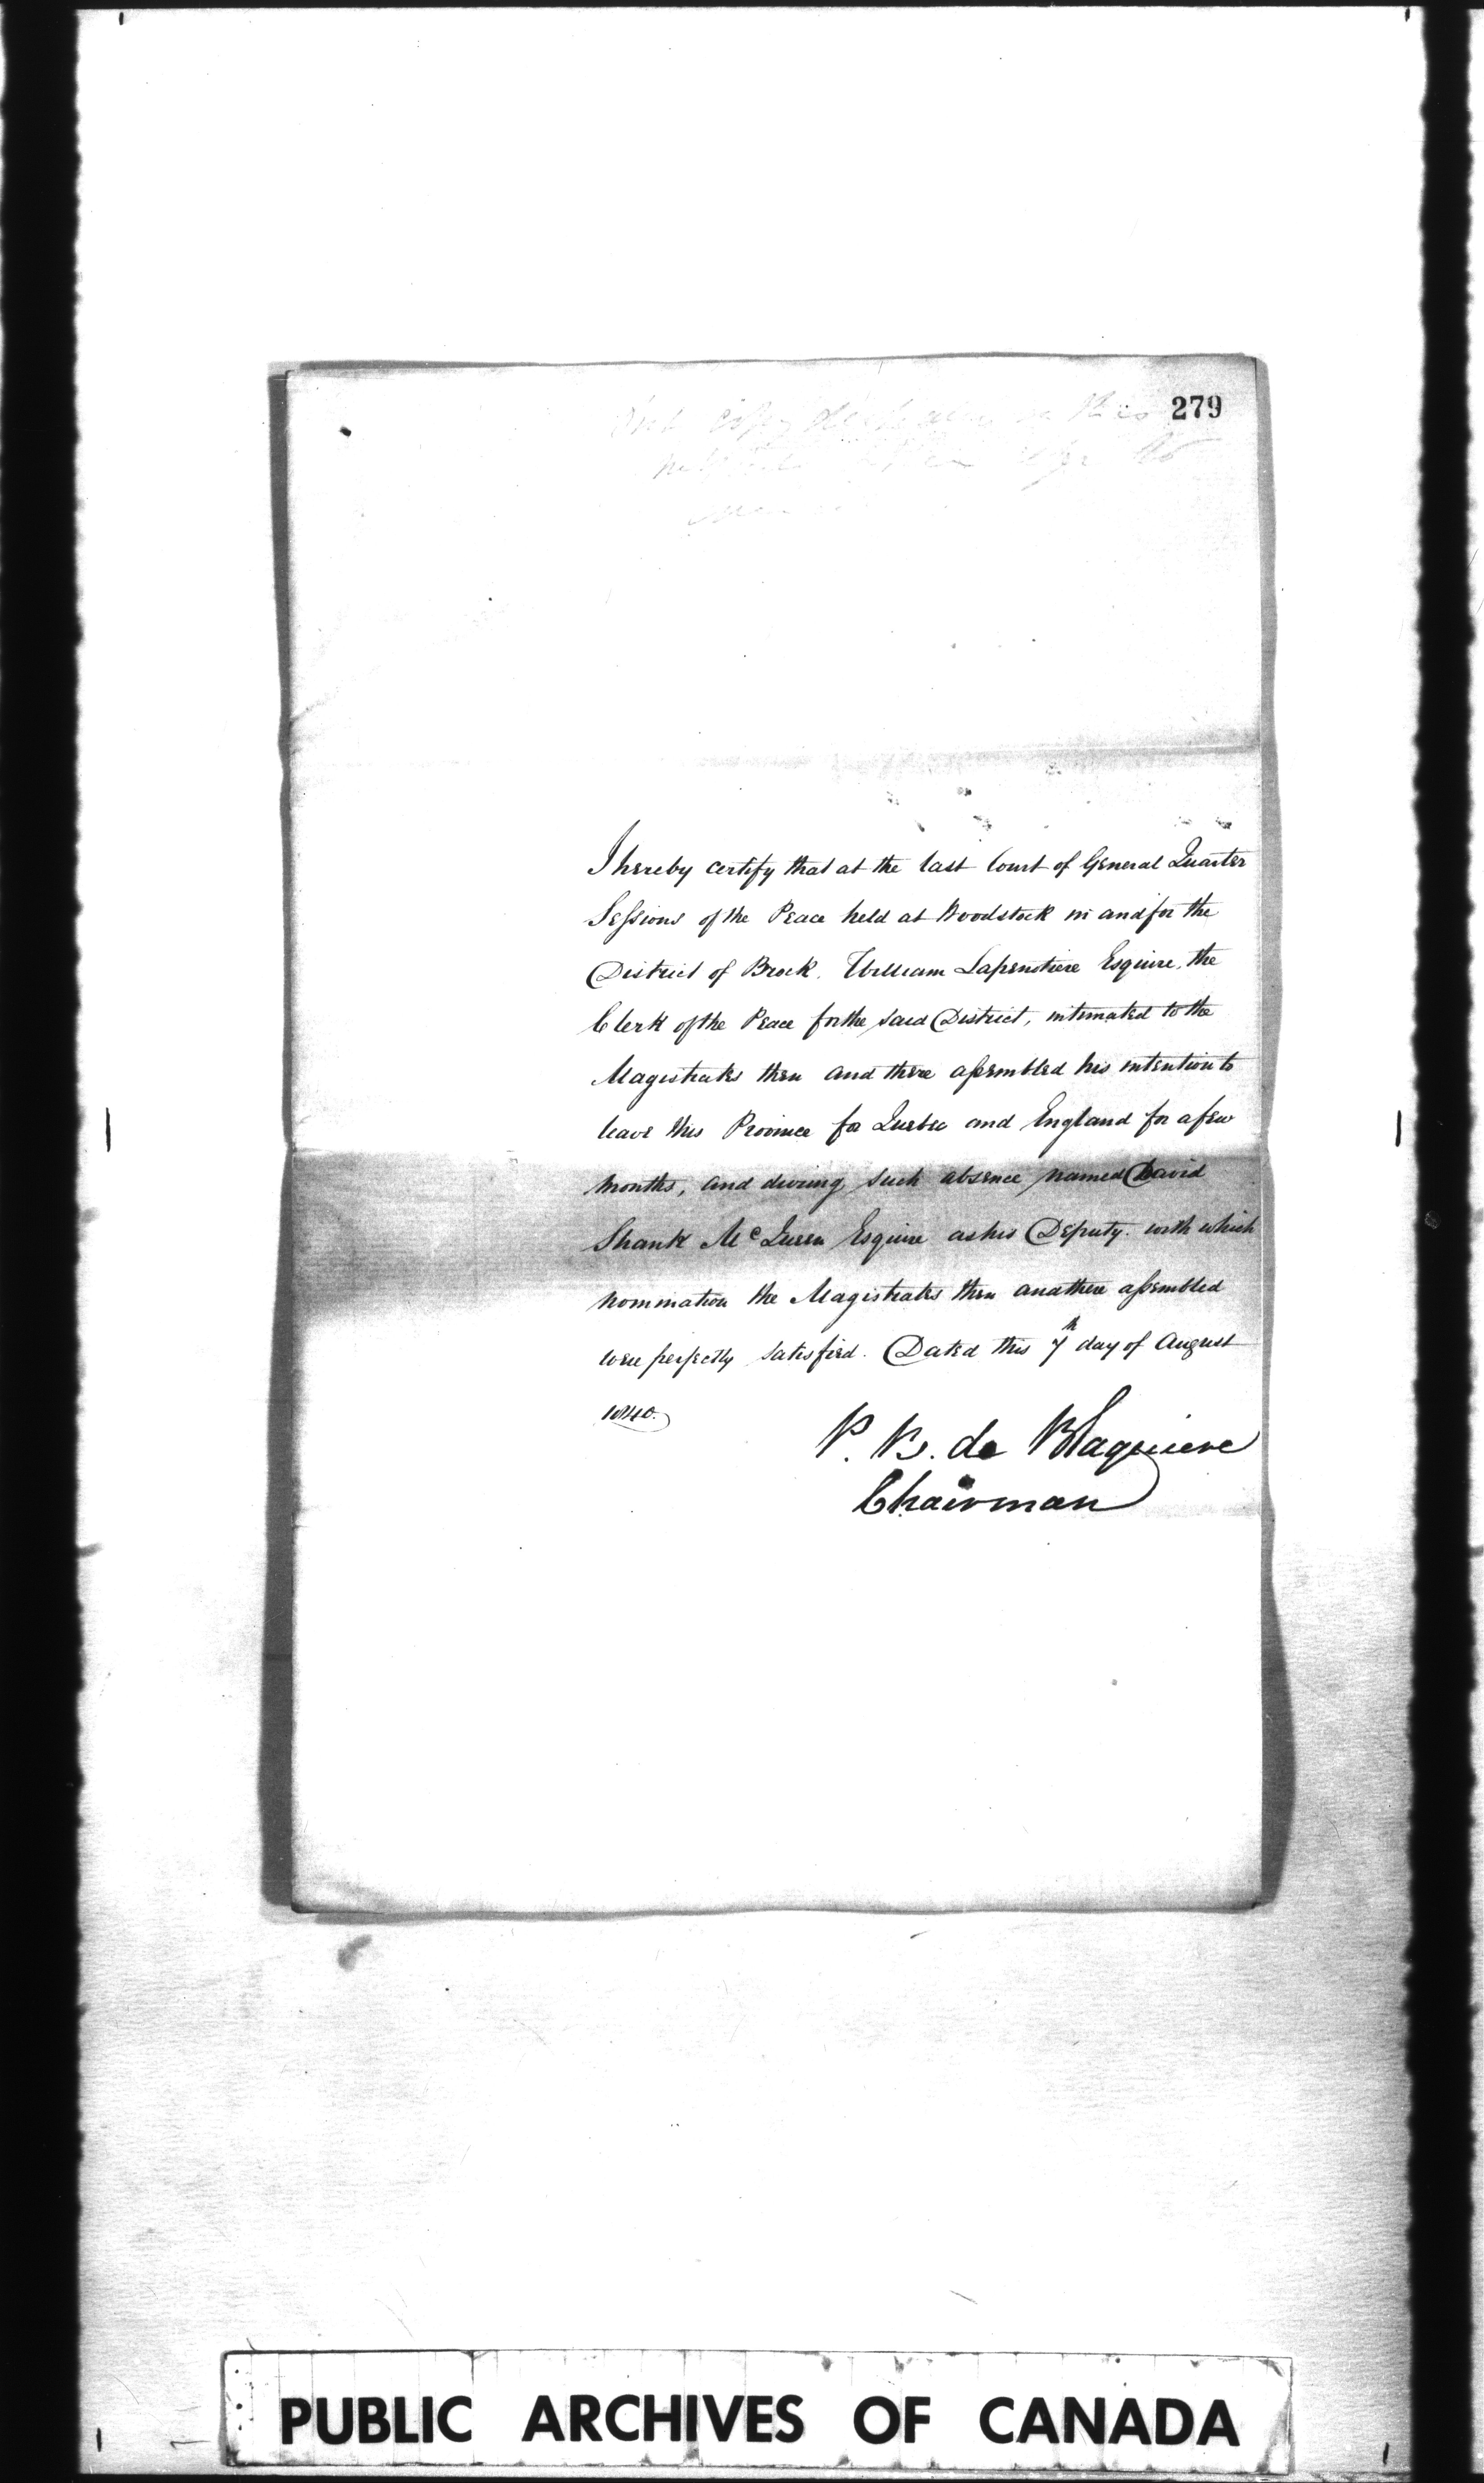 279
I hereby certify that at the last Court of General Quarter
Sessions of the Peace held at Woodstock in and for the
District of Brock. William Lapenotiere Esquire, the
Clerk of the Peace for the said District, intimated to the
Magistrates then and there assembled his intention to
leave this Province for Quebec and England for a few
months, and during such absence named David
Shank McQueen Esquire as his Deputy. with which
nomination the Magistrates then and there assembled
were perfectly satisfied. Dated this 7th day of August
1840.
P. B. de Blaquiere
Chairman
PUBLIC ARCHIVES OF CANADA